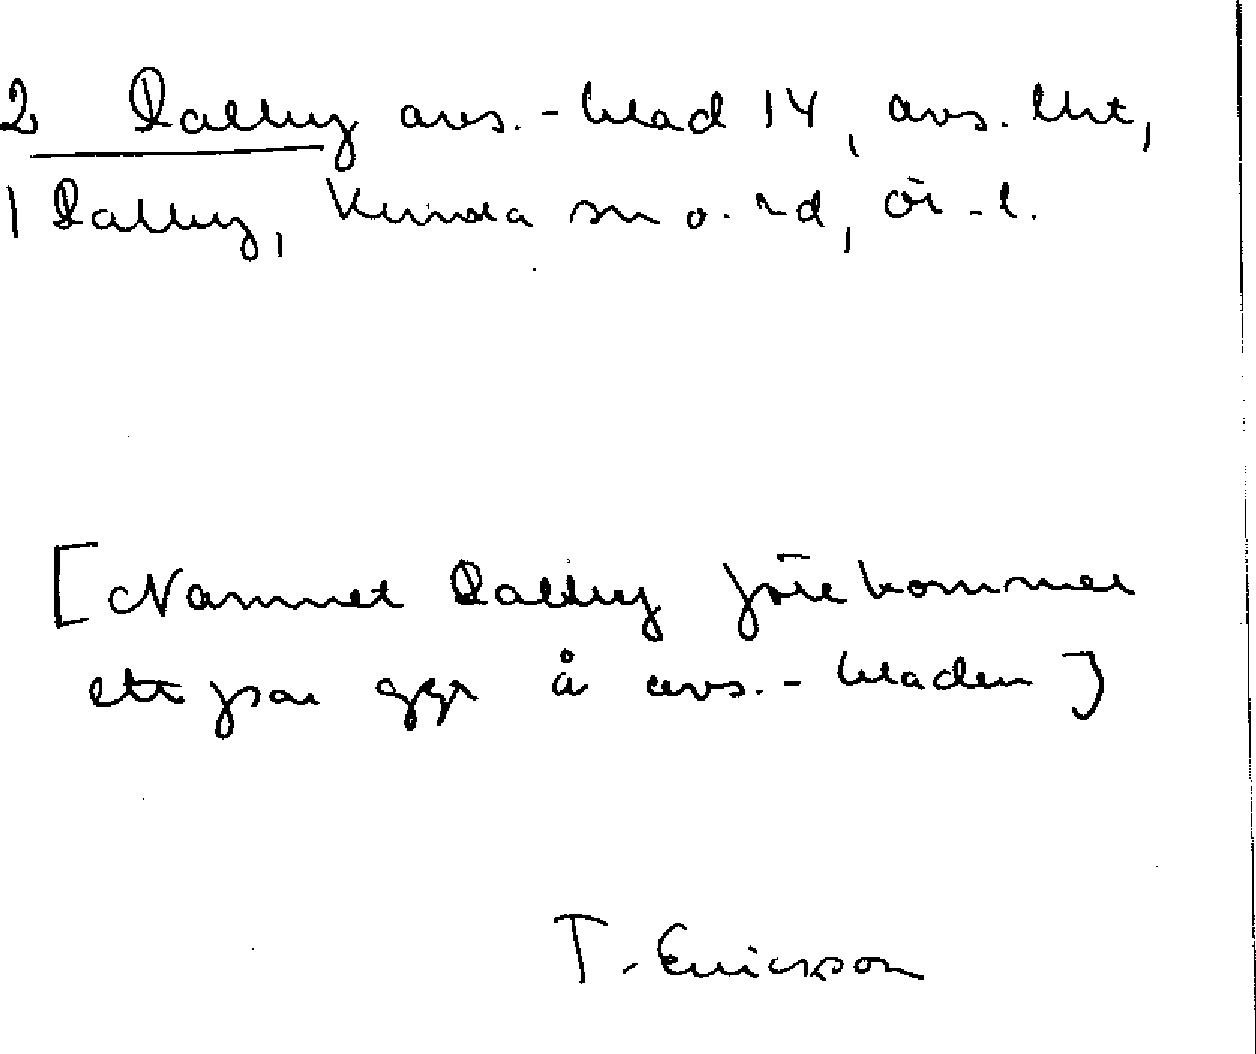 2 Dalby avs.-blad 14, avs. Uht,
1 Dalby, Kinda sn o. hd, Ög-l.
[Namnet Dalby förekommer
ett par ggr å avs.-bladen]
T. Ericsson